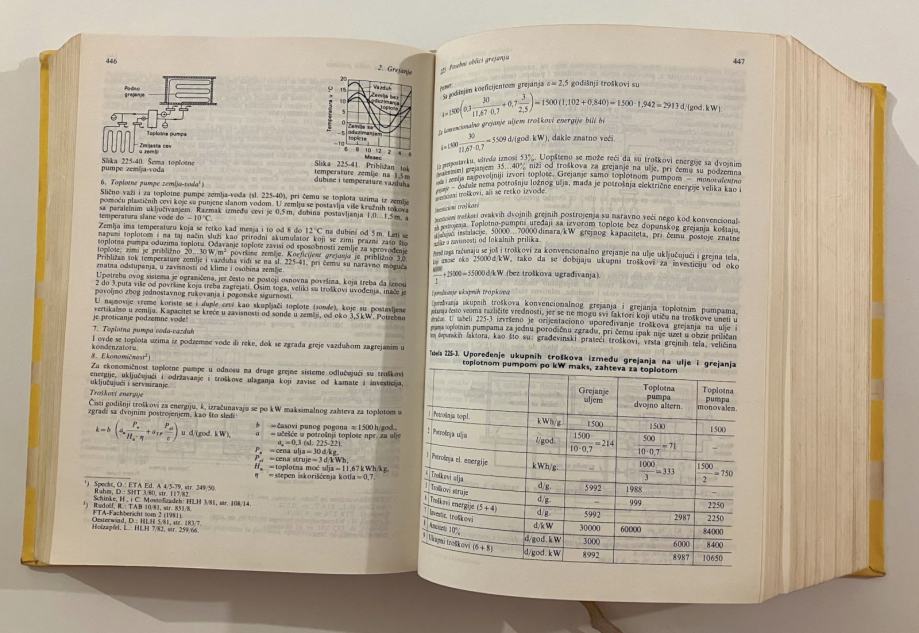 446
2. Grejanje
Podno
grejanje
Toplotna pumpa
Zmijasta cev
u zemlji
Slika 225-40. Šema toplotne
pumpe zemlja-voda
Temperatura v °C
20
15
10
5
0
-5
-10
Vazduh
Zemlja bez
oduzimanja
toplote
Zemlja sa
oduzimanjem
toplote
6 8 10 12 2 4 6
Mesec
Slika 225-41. Približan tok
temperature zemlje na 1,5 m
dubine i temperature vazduha
6. Toplotne pumpe zemlja-voda¹)
Slično važi i za toplotne pumpe zemlja-voda (sl. 225-40), pri čemu se toplota uzima iz zemlje
pomoću plastičnih cevi koje su punjene slanom vodom. U zemlju se postavlja više kružnih tokova
sa paralelnim uključivanjem. Razmak između cevi je 0,5 m, dubina postavljanja 1,0...1,5 m, a
temperatura slane vode do −10°C.
Zemlja ima temperaturu koja se retko kad menja i to od 8 do 12°C na dubini od 5 m. Leti se
napuni toplotom i na taj način služi kao prirodni akumulator koji se zimi prazni zato što
toplotna pumpa oduzima toplotu. Odavanje toplote zavisi od sposobnosti zemlje za sprovođenje
toplote; zimi je približno 20...30 W/m² površine zemlje. Koeficijent grejanja je približno 3,0.
Približan tok temperature zemlje i vazduha vidi se na sl. 225-41, pri čemu su naravno moguća
znatna odstupanja, u zavisnosti od klime i osobina zemlje.
Upotreba ovog sistema je ograničena, jer često ne postoji osnovna površina, koja treba da iznosi
2 do 3 puta više od površine koja treba zagrejati. Osim toga, veliki su troškovi uvođenja, inače je
povoljno zbog jednostavnog rukovanja i pogonske sigurnosti.
U najnovije vreme koriste se i duple cevi kao skupljači toplote (sonde), koje su postavljene
vertikalno u zemlju. Kapacitet se kreće u zavisnosti od sonde u zemlji, od oko 3,5 kW. Potrebno
je proticanje podzemne vode!
7. Toplotna pumpa voda-vazduh
I ovde se toplota uzima iz podzemne vode ili reke, dok se zgrada greje vazduhom zagrejanim u
kondenzatoru.
8. Ekonomičnost²)
Za ekonomičnost toplotne pumpe u odnosu na druge grejne sisteme odlučujući su troškovi
energije, uključujući i održavanje i troškove ulaganja koji zavise od kamate i investicija,
uključujući i servisiranje.
Troškovi energije
Čisti godišnji troškovi za energiju, k, izračunavaju se po kW maksimalnog zahteva za toplotom u
zgradi sa dvojnim postrojenjem, kao što sledi:
u d/(god. kW),
b = časovi punog pogona = 1500 h/god.,
a = učešće u potrošnji toplote npr. za ulje
= 0,3 (sl. 225-22).
= cena ulja = 30 d/kg,
= cena struje = 3 d/kWh,
= toplotna moć ulja = 11,67 kWh/kg,
η = stepen iskorišćenja kotla = 0,7.
¹) Specht, O.: ETA Ed. A 4/5-79, str. 249/50.
Ruhm, D.: SHT 3/80, str. 117/82.
Schinke, H., i C. Mostofizadeh: HLH 3/81, str. 108/14.
²) Rudolf, R.: TAB 10/81, str. 851/8.
FTA-Fachbericht tom 2 (1981).
Oesterwind, D.: HLH 5/81, str. 183/7.
Holzapfel, L.: HLH 7/82, str. 259/66.
225 Posebni oblici grejanja
447
Primer:
Sa godišnjim koeficijentom grejanja ε = 2,5 godišnji troškovi su
k = 1500 (0,3 · 30 / 11,67 · 0,7 + 0,7 · 3 / 2,5) = 1500 (1,102 + 0,840) = 1500 · 1,942 = 2913 d/(god. kW).
Za konvencionalno grejanje uljem troškovi energije bili bi
k = 1500 · 30 / 11,67 · 0,7 = 5509 d/(god. kW), dakle znatno veći.
pretpostavku, ušteda iznosi 53%. Uopšteno se može reći da su troškovi energije sa dvojnim
grejanjem 35...40% niži od troškova za grejanje na ulje, pri čemu su podzemna
voda i zemlja najpovoljniji izvori toplote. Grejanje samo toplotnom pumpom – monovalentno
grejanje – doduše nema potrošnju ložnog ulja, mada je potrošnja električne energije velika kao i
investicioni troškovi, ali se retko izvode.
Investicioni troškovi
Investicioni troškovi ovakvih dvojnih grejnih postrojenja su naravno veći nego kod konvencional-
nih postrojenja. Toplotno-pumpni uređaji sa izvorom toplote bez dopunskog grejanja koštaju,
uključujući instalacije, 50000...70000 dinara/kW grejnog kapaciteta, pri čemu postoje znatne
razlike u zavisnosti od lokalnih prilika.
Pored toga računaju se još i troškovi za konvencionalno grejanje na ulje uključujući i grejna tela,
koji iznose oko 25000 d/kW, tako da se dobijaju ukupni troškovi za investiciju od oko
+ 25000 = 55000 d/kW (bez troškova ugrađivanja).
Upoređivanje ukupnih troškova
Upoređivanja ukupnih troškova konvencionalnog grejanja i grejanja toplotnim pumpama,
pokazuju često veoma različite vrednosti, jer se ne mogu svi faktori koji utiču na troškove uneti u
obračun. U tabeli 225-3 izvršeno je orijentaciono upoređivanje troškova grejanja na ulje i
grejanja toplotnim pumpama za jednu porodičnu zgradu, pri čemu ipak nije uzet u obzir priličan
broj dopunskih faktora, kao što su: građevinski prateći troškovi, vrsta grejnih tela, veličina
Tabela 225-3. Upoređenje ukupnih troškova između grejanja na ulje i grejanja
toplotnom pumpom po kW maks, zahteva za toplotom
Grejanje uljem | Toplotna pumpa dvojno altern. | Toplotna pumpa monovalen.
1 Potrošnja topl. | kWh/g. | 1500 | 1500 | 1500
2 Potrošnja ulja | l/god. | 1500 / 10·0,7 = 214 | 500 / 10·0,7 = 71 | –
3 Potrošnja el. energije | kWh/g. | – | 1000 / 3 = 333 | 1500 / 2 = 750
4 Troškovi ulja | d/g. | 5992 | 1988 | –
5 Troškovi struje | d/g. | – | 999 | 2250
6 Troškovi energije (5+4) | d/g. | 5992 | 2987 | 2250
7 Investic. troškovi | d/kW | 30000 | 60000 | 84000
8 Anuiteti 10% | d/god. kW | 3000 | 6000 | 8400
9 Ukupni troškovi (6+8) | d/god. kW | 8992 | 8987 | 10650